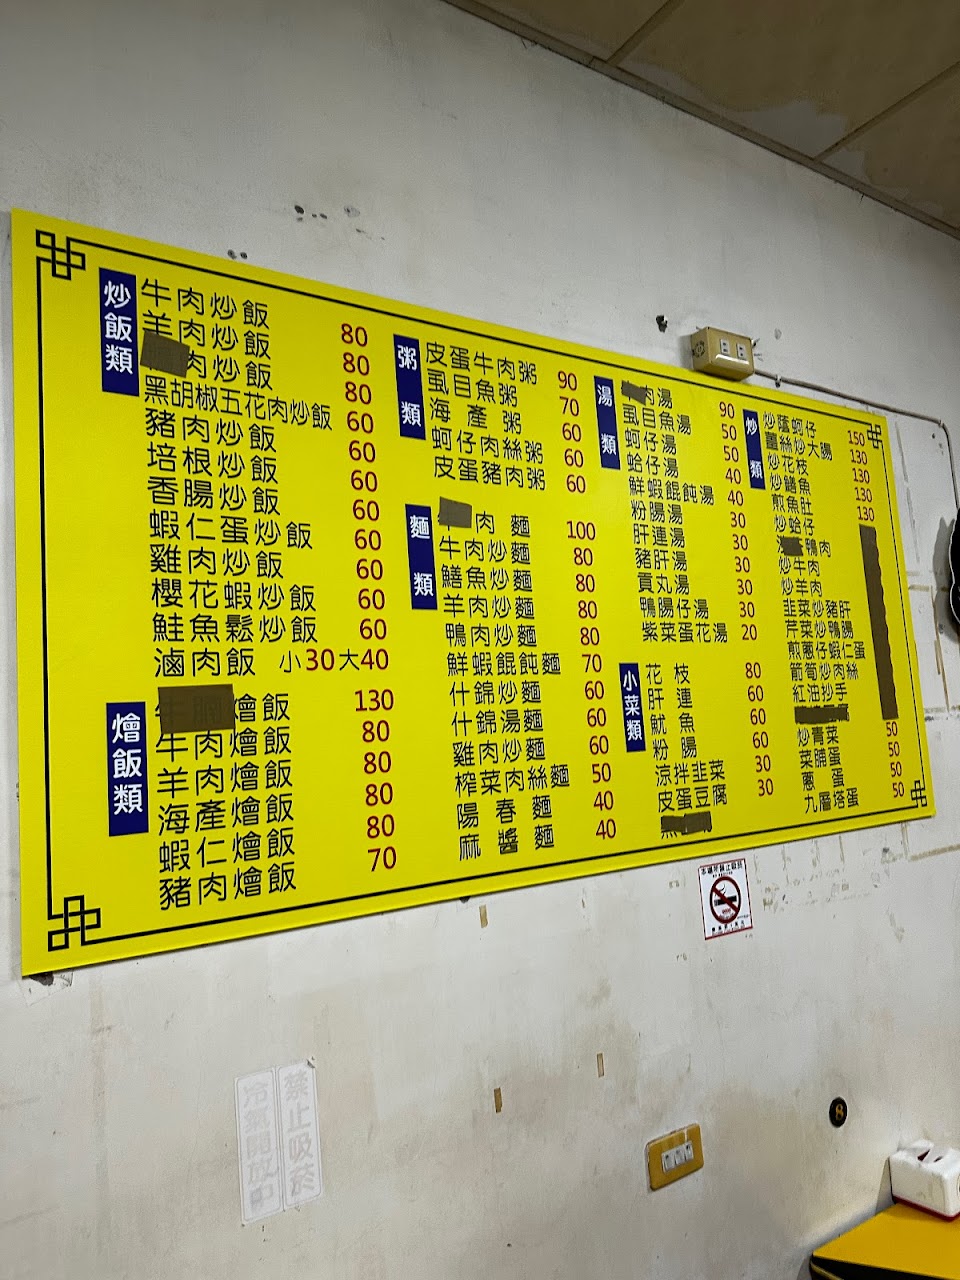 炒飯類
牛肉炒飯 80
羊肉炒飯 80
肉炒飯 80
黑胡椒五花肉炒飯 60
豬肉炒飯 60
培根炒飯 60
香腸炒飯 60
蝦仁蛋炒飯 60
雞肉炒飯 60
櫻花蝦炒飯 60
鮭魚鬆炒飯 60
滷肉飯 小30大40
燴飯類
燴飯 130
牛肉燴飯 80
羊肉燴飯 80
海產燴飯 80
蝦仁燴飯 80
豬肉燴飯 70
粥類
皮蛋牛肉粥 90
虱目魚粥 70
海產粥 60
蚵仔肉絲粥 60
皮蛋豬肉粥 60
麵類
肉麵 100
牛肉炒麵 80
鱔魚炒麵 80
羊肉炒麵 80
鴨肉炒麵 80
鮮蝦餛飩麵 70
什錦炒麵 60
什錦湯麵 60
雞肉炒麵 60
榨菜肉絲麵 50
陽春麵 40
麻醬麵 40
湯類
肉湯 90
虱目魚湯 50
蚵仔湯 50
蛤仔湯 40
鮮蝦餛飩湯 40
粉腸湯 30
肝連湯 30
豬肝湯 30
貢丸湯 30
鴨腸仔湯 30
紫菜蛋花湯 20
小菜類
花枝 80
肝連 60
魷魚 60
粉腸 60
涼拌韭菜 30
皮蛋豆腐 30
炒類
炒蔭蚵仔 150
薑絲炒大腸 130
炒花枝 130
炒鱔魚 130
煎魚肚 130
炒蛤仔
鴨肉
炒牛肉
炒羊肉
韭菜炒豬肝
芹菜炒鴨腸
煎蔥仔蝦仁蛋
箭筍炒肉絲
紅油抄手
炒青菜 50
菜脯蛋 50
蔥蛋 50
九層塔蛋 50
禁止吸菸
冷氣開放中
8